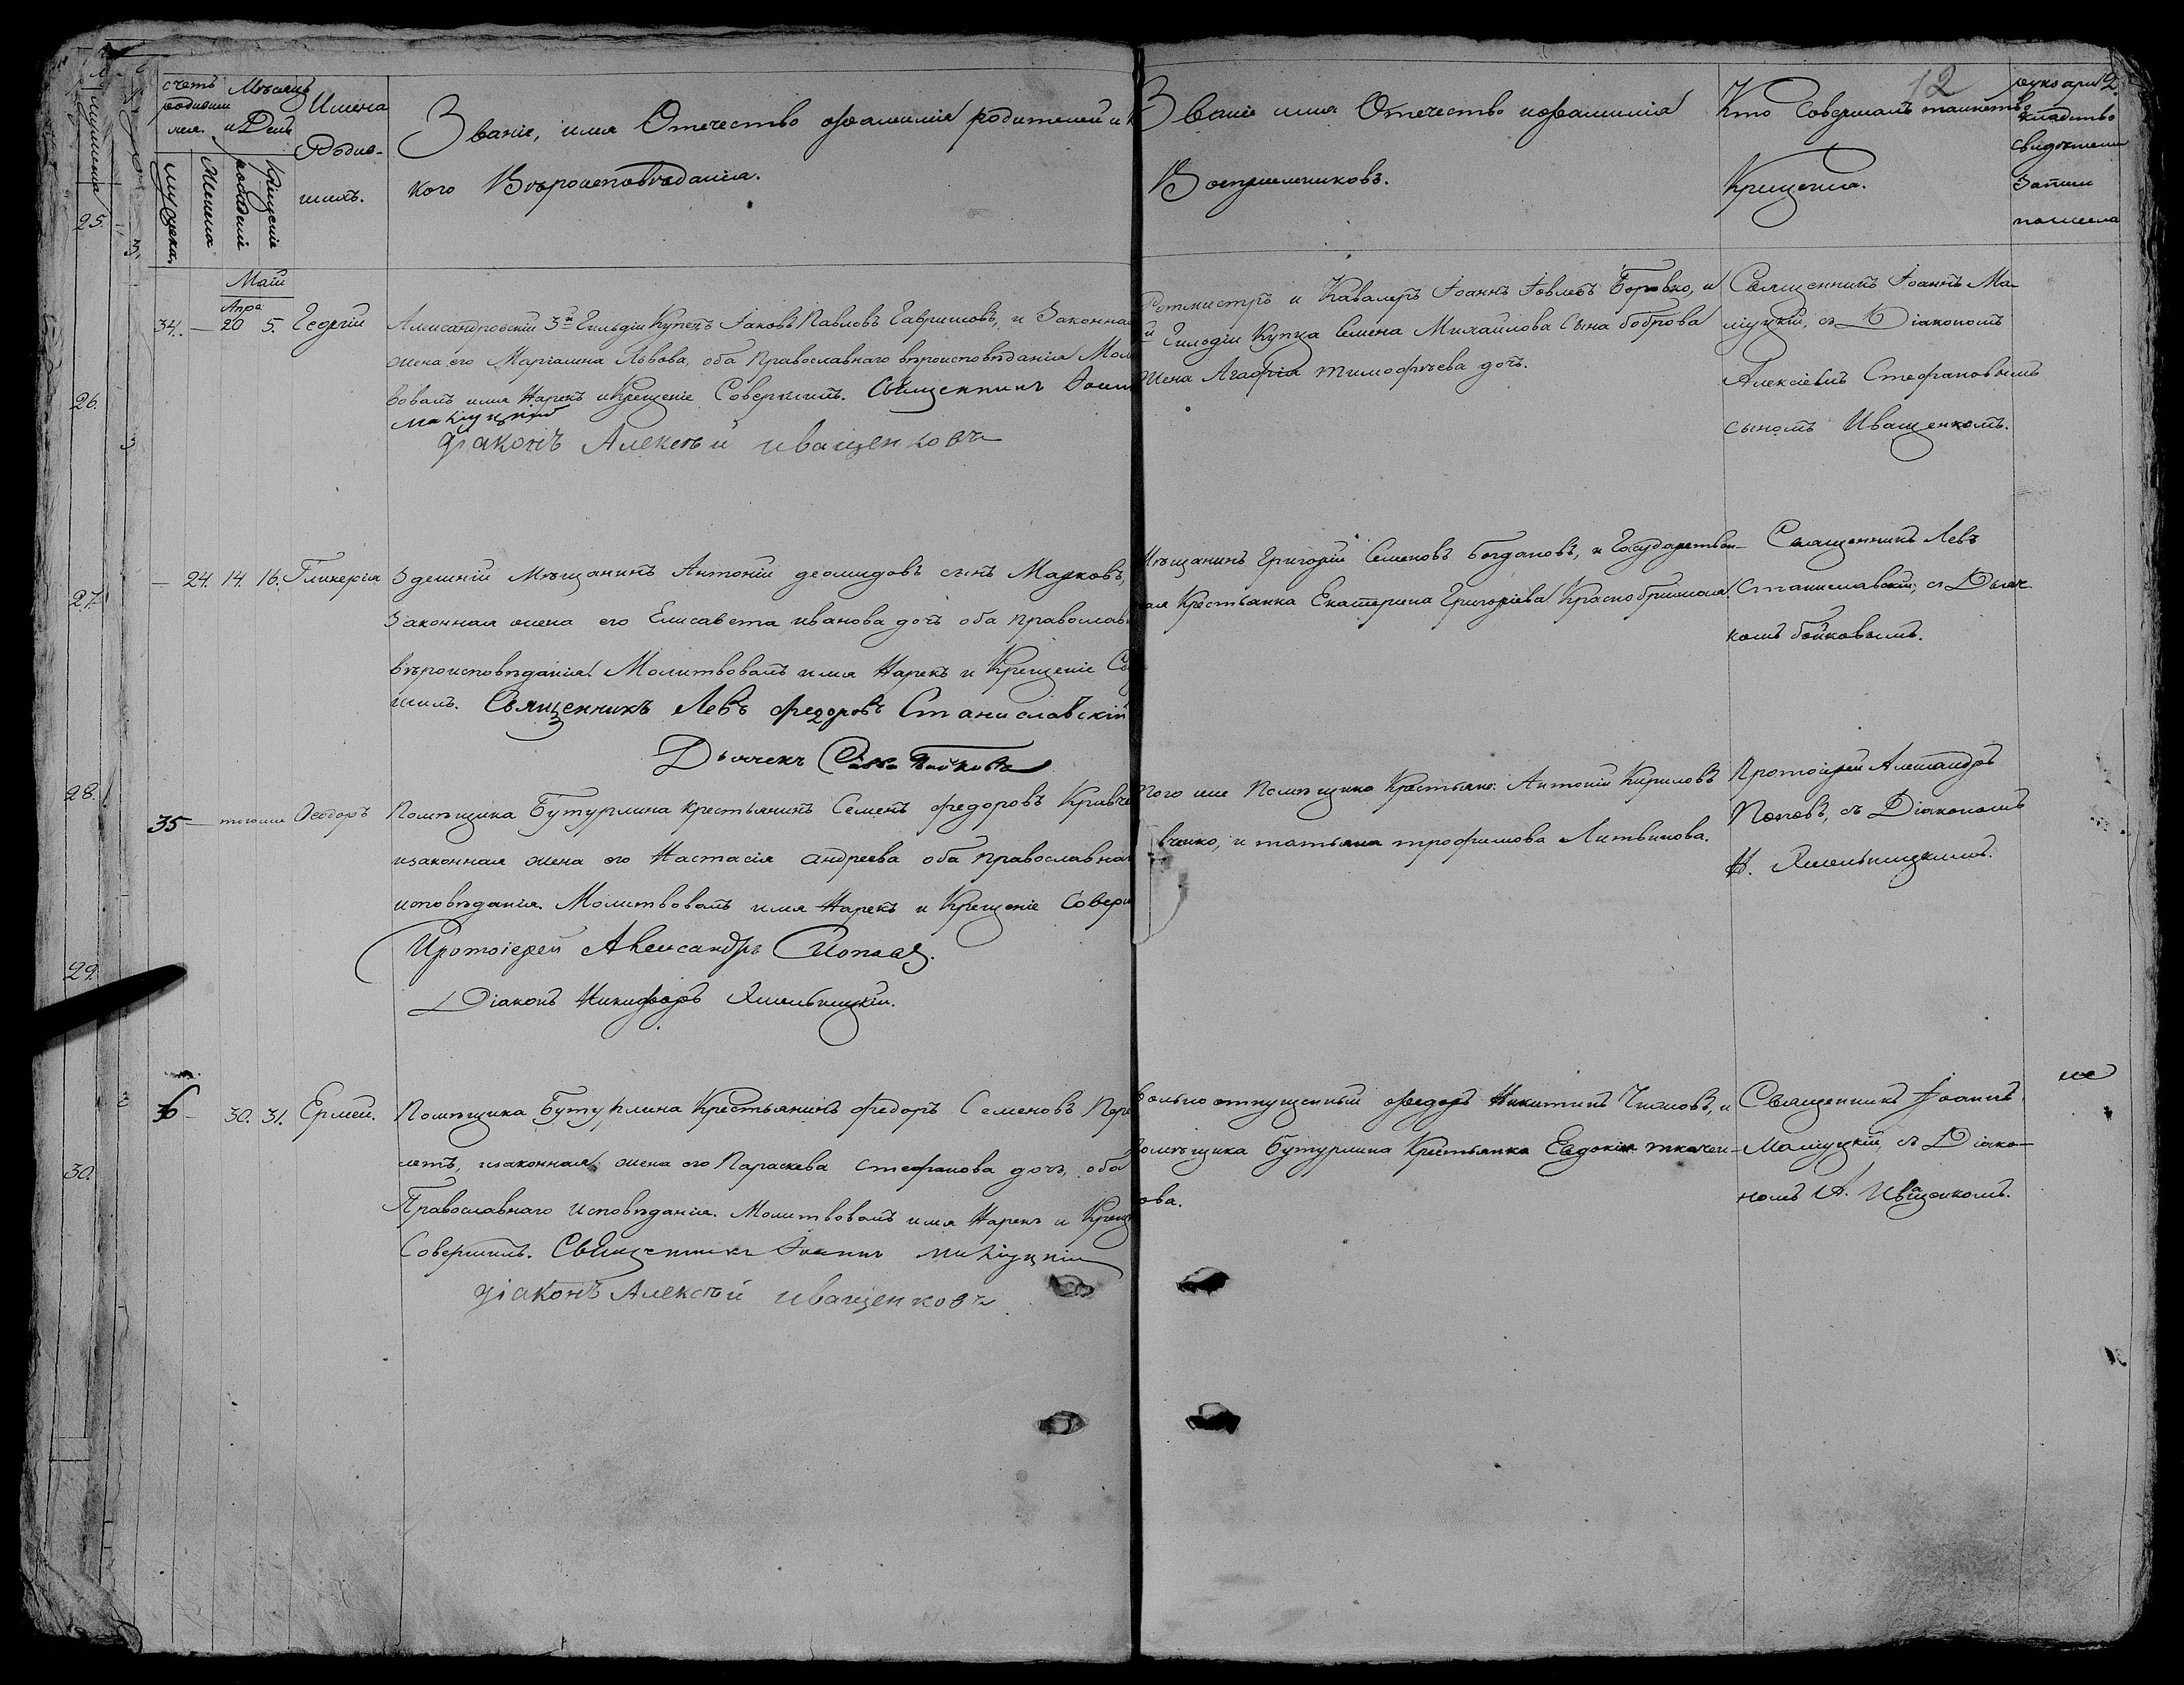 12
счетъ
родивши
Мѣсяцъ
и День
мужеска.
Женска
рожденія
Крещенія
Имена
Родив-
шихъ.
Званіе, имя Отечество фамилія родителей и к
кого Вѣроисповѣданія.
Званіе имя Отечество и фамилія
Воспріемниковъ.
Кто Совершалъ таинство
Крещенія.
рукоприк
кладство
свидѣтелей
Записи
25.
26.
27.
28.
29.
30.
Май
Апре
34. — 20 5. Георгій
Александровскій 3й Гильдіи Купецъ Іаковъ Павловъ Гавриловъ, и Законна
жена его Маріамна Львова, оба Православнаго вѣроисповѣданія Мол
вовалъ имя Нарекъ и Крещеніе Совершилъ. Священникъ Іоан
Маліуцкій
Діаконъ Алексѣй Иващенковъ
Ротмистръ и Кавалеръ Іоаннъ Іовлевъ Боровко, и
й Гильдіи Купца Семена Михаилова Сына Боброва
жена Агафія Тимофѣева дочь.
Священникъ Іоаннъ Ма-
ліуцкій, съ Діакономъ
Алексіемъ Стефановымъ
сыномъ Иващенкомъ.
— 24. 14 16. Гликерія
Здешній Мѣщанинъ Антоній Деомидовъ сынъ Марковъ,
Законная жена его Елисавета Иванова дочь оба православ
вѣроисповѣданія Молитвовалъ имя Нарекъ и Крещеніе Со
шилъ. Священникъ Левъ Федоровъ Станиславскій
Дьячекъ Савва Бойковъ
Мѣщанинъ Григорій Семеновъ Богдановъ, и Государствен-
ная Крестьянка Екатерина Григоріева Краснобрижая
Священникъ Левъ
Станиславскій, съ Дьяч
комъ Бойковымъ.
35 — тогоже Ѳеодоръ
Помѣщика Бутурлина крестьянинъ Семенъ Федоровъ Кравче
изаконная жена его Настасія Андреева оба православна
исповѣданія. Молитвовалъ имя Нарекъ и Крещеніе Совер
Протоіерей Александръ Поповъ.
Діаконъ Никифоръ Хмельницкій.
Того же Помѣщика Крестьяне: Антоній Кириловъ
вченко, и Татьяна Трофимова Литвинова.
Протоіерей Александръ
Поповъ, съ Діакономъ
Н. Хмельницкимъ.
36 — 30. 31. Ермей.
Помѣщика Бутурлина Крестьянинъ Федоръ Семеновъ Пере
летъ, изаконная жена его Параскева Стефанова дочь, оба
Православнаго Исповѣданія. Молитвовалъ имя Нарекъ и Крещ
Совершилъ. Священникъ Іоаннъ Маліуцкій
Діаконъ Алексѣй Иващенковъ
Вольноотпущенный Федоръ Никитинъ Чижовъ, и
Помѣщика Бутурлина Крестьянка Евдокія Ткачен-
кова.
Священникъ Іоаннъ
Маліуцкій, съ Діако-
номъ А. Иващенкомъ.